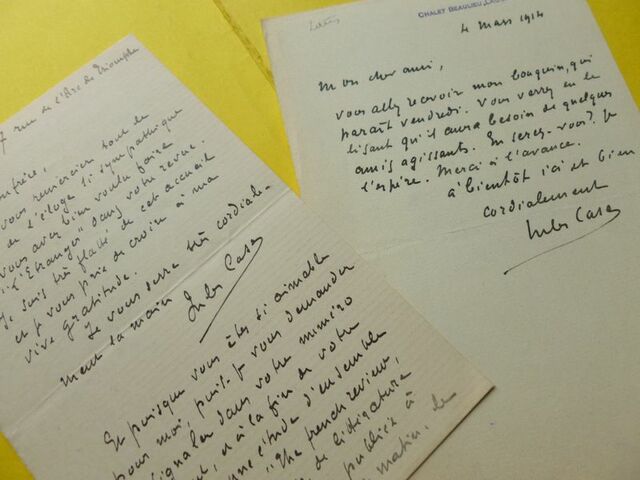 7 rue de l'Arc de Triomphe
vous remercier tout de
de l'éloge si sympathique
vous avez bien voulu faire
"l'Étranger" dans votre revue.
suis très flatté de cet accueil
et je vous prie de croire à ma
vive gratitude.
Je vous serre très cordiale-
ment la main
Jules Case
Et puisque vous êtes si aimable
pour moi, puis-je vous demander
signaler dans votre numéro
à la fin de votre
une étude d'ensemble
"The french review,
de littérature
publiée à
matin, le
CHALET BEAULIEU,
4 Mars 1914
Mon cher ami,
vous allez recevoir mon bouquin, qui
paraît vendredi. Vous verrez en le
lisant qu'il aura besoin de quelques
amis agissants. En serez-vous? Je
l'espère. Merci à l'avance.
à bientôt ici et bien
cordialement
Jules Case